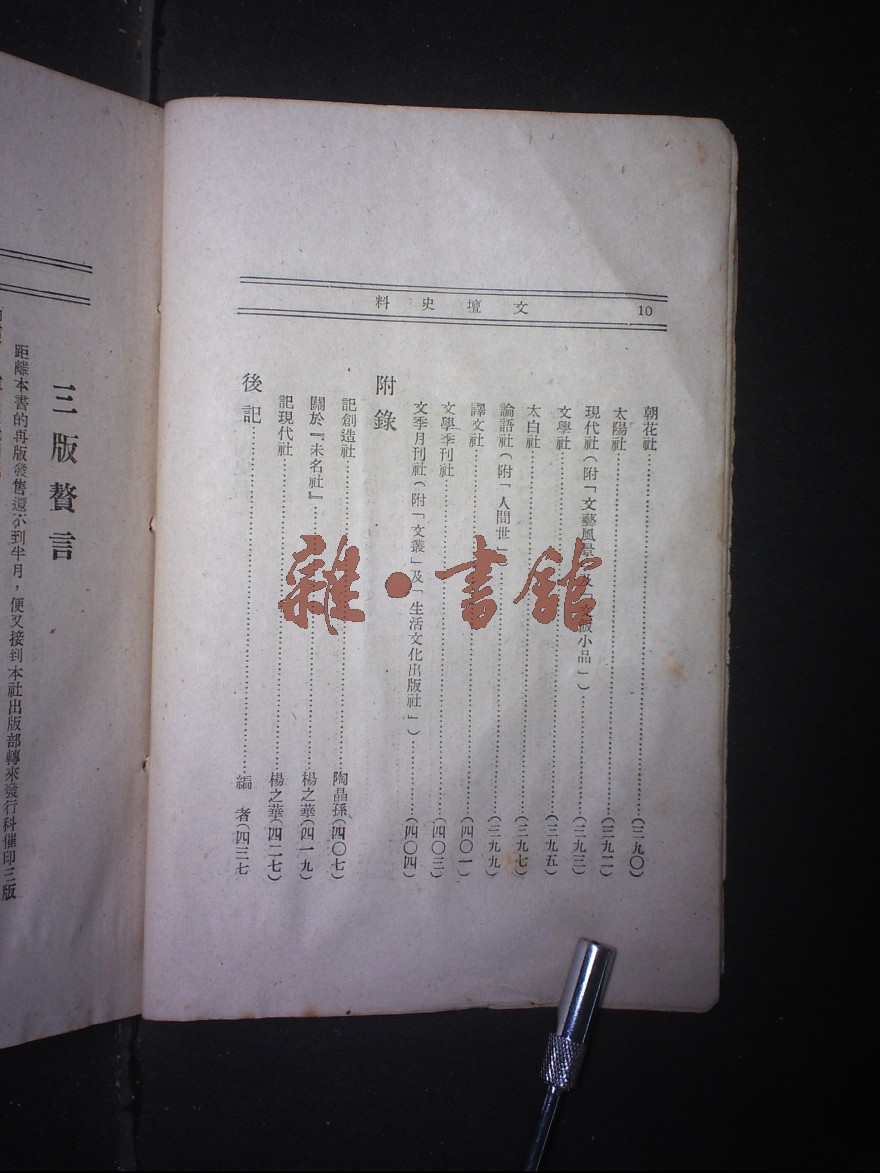 10
文壇史料
朝花社……(三九〇)
太陽社……(三九二)
現代社(附「文藝風景」及「文飯小品」)……(三九三)
文學社……(三九五)
太白社……(三九七)
論語社(附「人間世」)……(三九九)
譯文社……(四〇一)
文學季刊社……(四〇三)
文季月刊社(附「文叢」及「生活文化出版社」)……(四〇四)
附錄
記創造社……陶晶孫(四〇七)
關於『未名社』……楊之華(四一九)
記現代社……楊之華(四二七)
後記……編者(四三七
三版贅言
距離本書的再版發售還不到半月，便又接到本社出版部轉來發行科催印三版
雜·書館